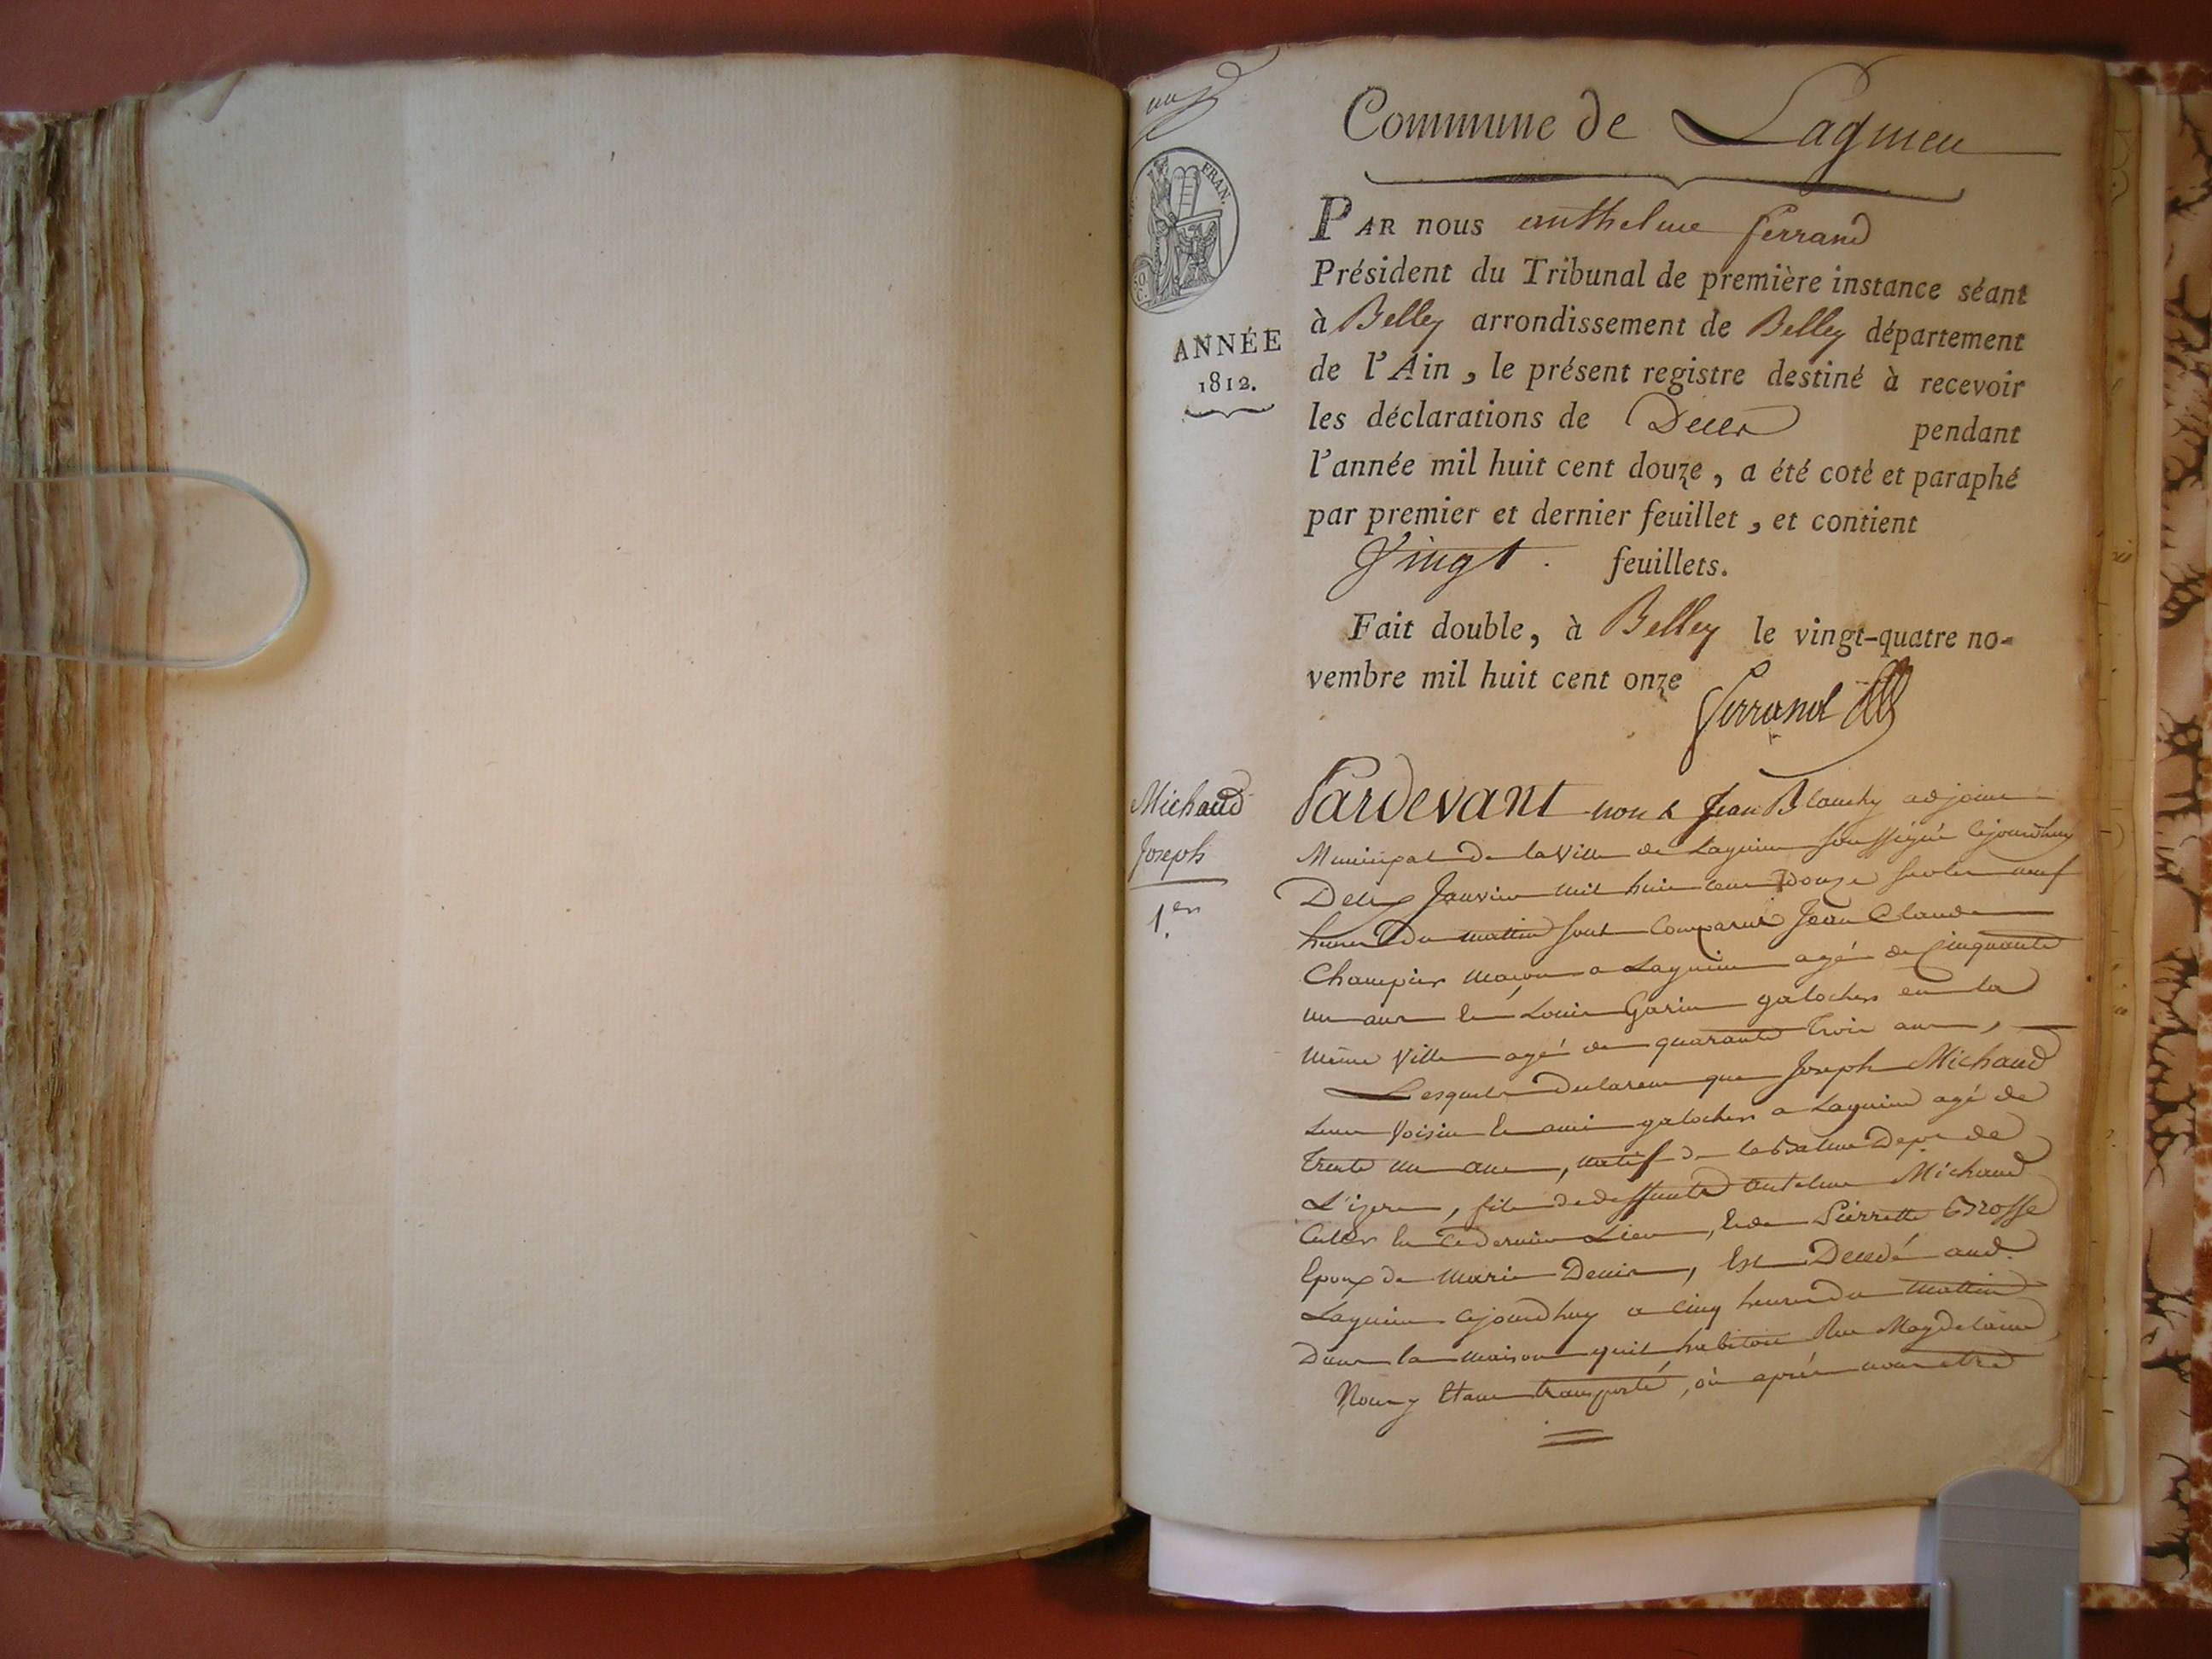 un
FRAN.
50
C.
ANNÉE
1812.
Commune de Lagnieu
PAR nous anthelme ferrand
Président du Tribunal de première instance séant
à Belley arrondissement de Belley département
de l'Ain, le présent registre destiné à recevoir
les déclarations de Decès pendant
l'année mil huit cent douze, a été coté et paraphé
par premier et dernier feuillet, et contient
Vingt. feuillets.
Fait double, à Belley le vingt-quatre no-
vembre mil huit cent onze
Ferrand
Michaud
Joseph
1.er
Pardevant nous Jean Blanchy adjoint
Municipal de la Ville de Lagnieu soussigné cejourdhuy
Deux Janvier mil huit cent Douze sur les neuf
heures du mattin sont Comparus Jean Claude
Champier maçon a Lagnieu agé de Cinquante
un ans et Louis Garin galocher en la
même Ville agé de quarante trois ans,
Lesquels Declarent que Joseph Michaud
Leur Voisin et ami galocher a Lagnieu agé de
trente un ans, natif de la Balme Depr de
L'izere, fils de deffunts antelme Michaud
Cultr en Ce dernier Lieu, et de Pierrette Brosse
Epoux de Marie Denis, Est Decedé aud.
Lagnieu cejourdhuy a cinq heures du mattin
Dans la maison quil habitoit Rue Magdelaine
Nous y étant transporté, où après nous être